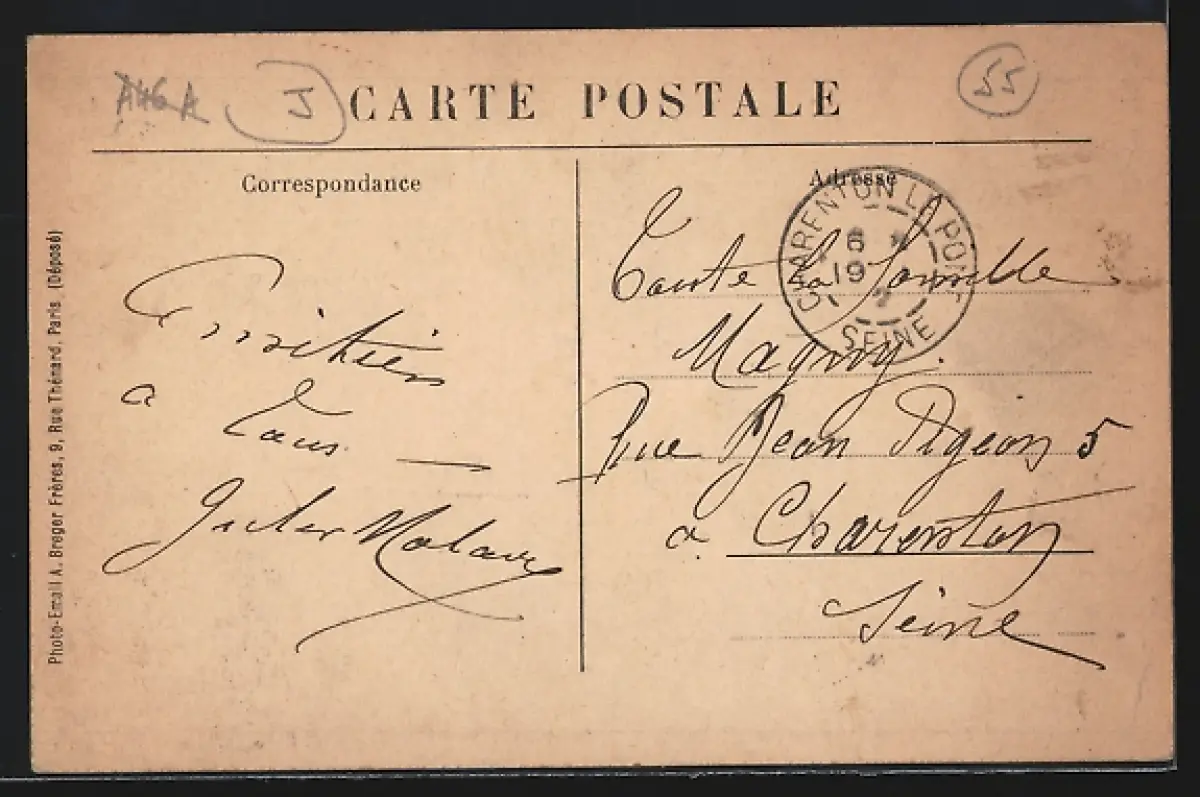 A46A
J
CARTE POSTALE
55
Correspondance
Adresse
CHARENTON LE PONT
6
19
SEINE
Photo-Email A. Breger Frères, 9, Rue Thénard, Paris (Déposé)
Amitiés
a
Tous
Toute la famille
Magny.
Rue Jean Pigeon 5
a Charenton
Seine